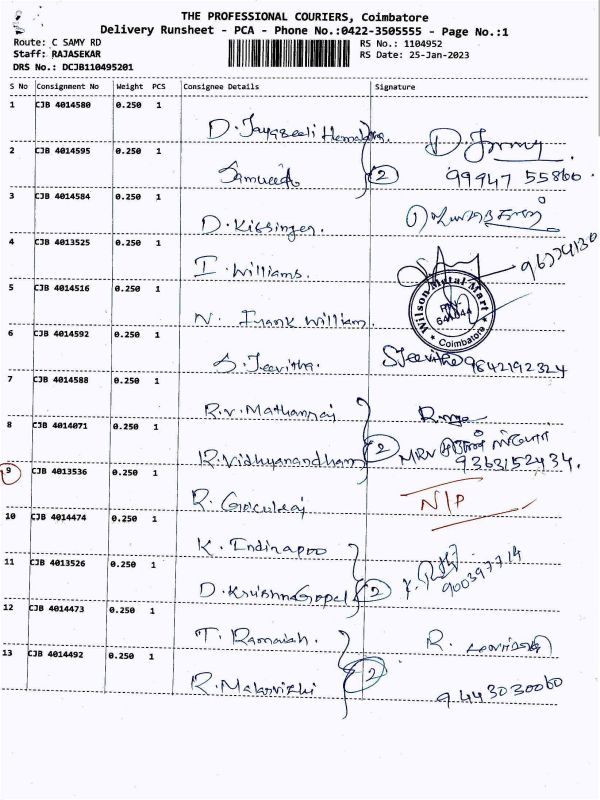 THE PROFESSIONAL COURIERS, Coimbatore
Delivery Runsheet - PCA - Phone No.:0422-3505555 - Page No.:1
Route: C SAMY RD
Staff: RAJASEKAR
DRS No.: DCJB110495201
RS No.: 1104952
RS Date: 25-Jan-2023
S No Consignment No Weight PCS Consignee Details Signature
1 CJB 4014580 0.250 1 D.
2 CJB 4014595 0.250 1 2
99947 55860
3 CJB 4014584 0.250 1 D. Kissinger.
4 CJB 4013525 0.250 1 I. Williams.
5 CJB 4014516 0.250 1 N. Frank William.
Wilson Mutal Mart
Coimbatore
6 CJB 4014592 0.250 1 S. Jeevitha. S Jeevitha 9842192324
7 CJB 4014588 0.250 1 R.V. Mathanraj
8 CJB 4014071 0.250 1 R. Vidhyanandham 2 MRV
9363152434.
9 CJB 4013536 0.250 1 R. Gokulraj N/P
10 CJB 4014474 0.250 1 K.
11 CJB 4013526 0.250 1 D. Krishna Gopal 2
12 CJB 4014473 0.250 1 T. Ramaiah. R.
13 CJB 4014492 0.250 1 R. Malarvizhi 2
9443030060